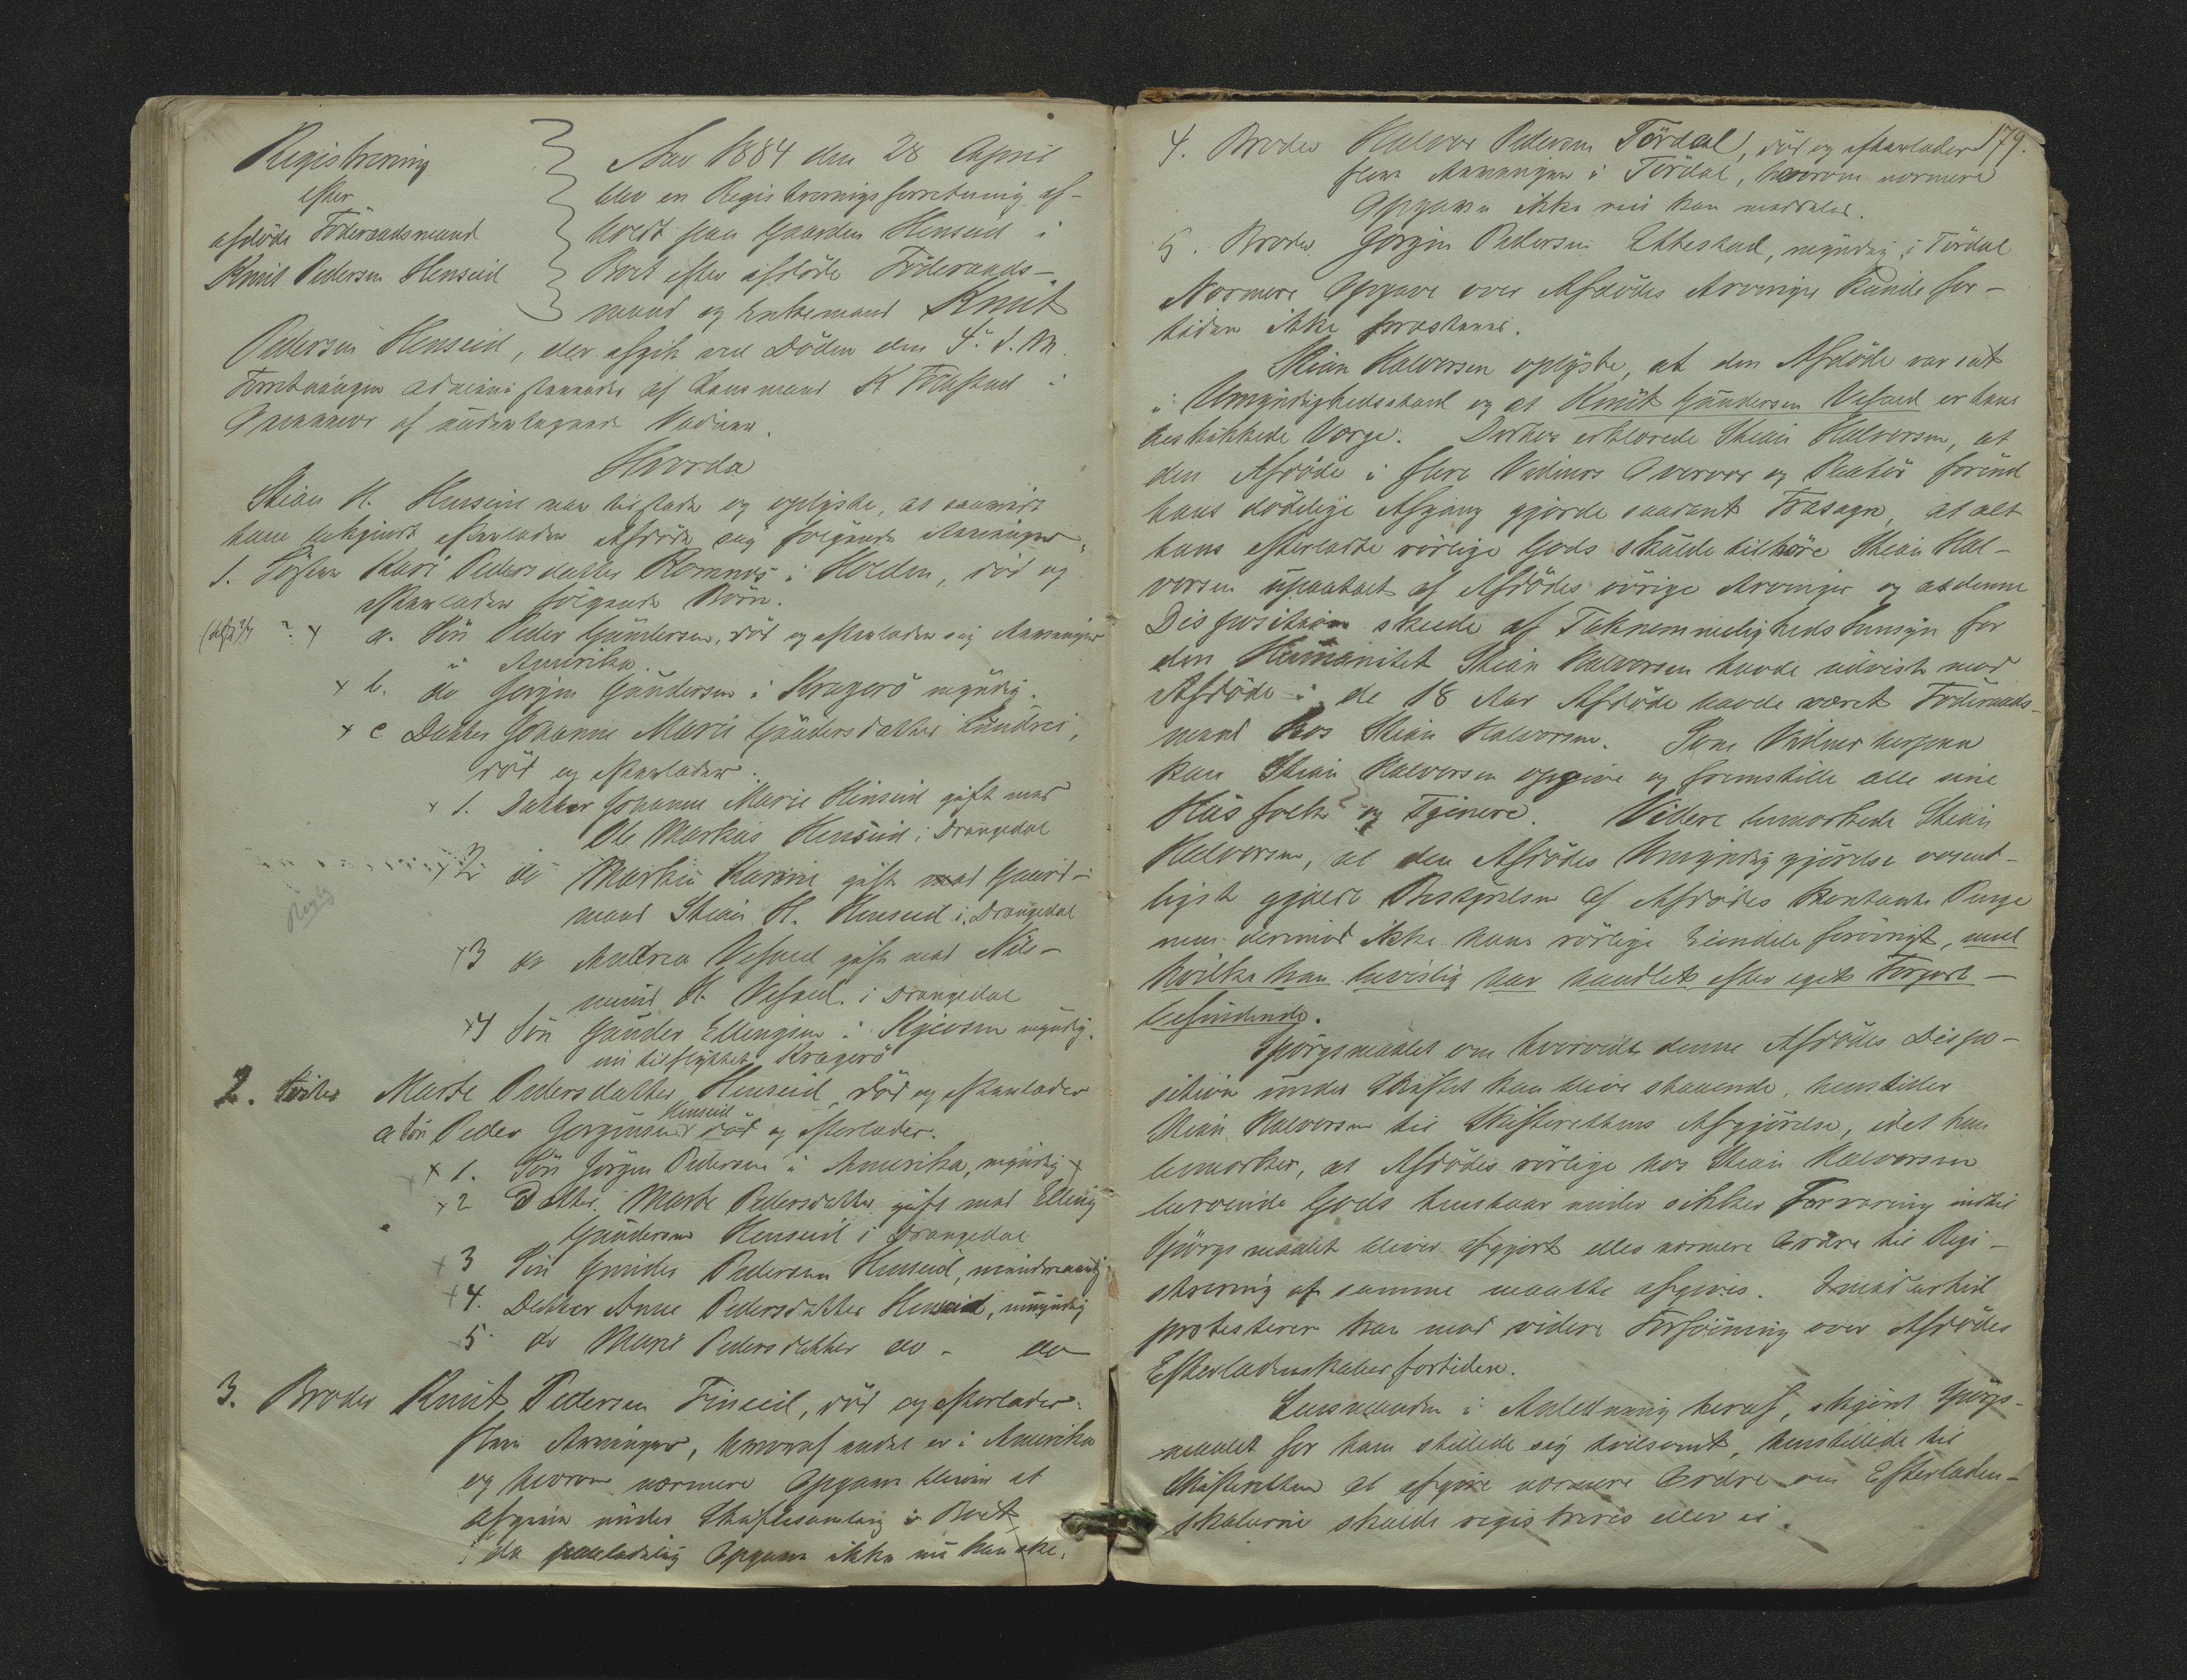 Registrering
efter
afdøde Föderaadsmand
Knut Pedersen Henseid
Aar 1884 den 28 April
blev en Registreringsforretning af-
holdt paa Gaarden Henseid i
Boet efter afdøde Föderaads-
mand og Enkemand Knut
Pedersen Henseid, der afgik ved Döden den 4. d. M.
Forretningen administreredes af Lensmand K Tröstad i
Overvær af undertegnede Vidner.
Hvorda
Stian H. Henseid var tilstede og oplyste, at saavidt
ham bekjendt efterlader Afdøde sig følgende Arvinger,
1. Søster Kari Pedersdatter Romnes i Holden, död og
efterlader følgende Börn.
a. Sön Peder Gundersen, död og efterlader sig Arvinger
i Amerika.
b. do Jørgen Gundersen i Kragerö myndig.
c. Datter Johanne Marie Gundersdatter Lundrei,
död og efterlader.
1. Datter Johanne Marie Henseid gift med
Ole Markus Henseid i Drangedal
2 do Marthe Karine gift med Gaard-
mand Stian H. Henseid i Drangedal
3 do Andrea Vefald gift med Nils-
mund H. Vefald i Drangedal
4 Sön Gunder Ellingsen i myndig.
nu tilflyttet Kragerö
2. Söster Marte Pedersdatter Henseid, död og efterlader
a Sön Peder Jørgensen Henseid död og efterlader.
1. Sön Jørgen Pedersen i Amerika, myndig
2 Datter Marte Pedersdatter gift med Elling
Gundersen Henseid i Drangedal
3 Sön Gunder Pedersen Henseid, mindreaarig
4. Datter Anne Pedersdatter Henseid, umyndig
5 do Mari Pedersdatter do - do
3. Broder Knut Pedersen Finseid, död og efterlader:
flere Arvinger, hvoraf endel er i Amerika
og hvorom nærmere Opgave bliver at
afgive under Skiftesamling i Boet
da paalidelig Opgave ikke nu kan ske.
179.
4. Broder Halvor Pedersen Tördal, död og efterlader
flere Arvinger i Tördal, hvorom nærmere
Opgave ikke nu kan meddeles.
5. Broder Jørgen Pedersen Ettestad, myndig i Tördal
Nærmere Opgave over Afdødes Arvinger kunde for-
tiden ikke præsteres.
Stian Halvorsen oplyste, at den Afdöde var sat
i Umyndighedsstand og at Knut Gundersen Vefald er hans
beskikkede Værge. Derhos erklærede Stian Halvorsen, at
den Afdöde i flere Vidners Overvær og Paahör forend
hans dödelige Afgang gjorde saadant Frasagn, at alt
hans efterladte rörlige Gods skulde tilhöre Stian Hal-
vorsen upaatalt af Afdödes övrige Arvinger og at denne
Disposition skeede af Taknemmelighedshensyn for
den Humanitet Stian Halvorsen havde udvist mod
Afdöde i de 18 Aar Afdöde havde været Föderaads-
mand hos Stian Halvorsen. Som Vidner herpaa
kan Stian Halvorsen opgive og fremstille alle sine
Husfolk og Tjenere. Videre bemærkede Stian
Halvorsen, at den Afdödes Umyndiggjörelse væsent-
ligst gjaldt Bestyrelsen af Afdödes kontante Penge
men derimod ikke hans rörlige Eiendele forövrigt, med
hvilke han bevislig har handlet efter eget Forgodt-
befindende.
Spörgsmaalet om hvorvidt denne Afdödes Dispo-
sition under Skiftet kan blive staaende, henstiller
Stian Halvorsen til Skifterettens Afgjörelse, idet han
bemærker, at Afdödes rörlige hos Stian Halvorsen
beroende Gods henstaar under sikker Forvaring indtil
Spörgsmaalet bliver afgjort eller nærmere Ordre til Regi-
strering af samme maatte afgives. Imidlertid
protesterer han mod videre Forföining over Afdödes
Efterladenskaber fortiden.
Lensmanden i Anledning heraf, skjönt Spörgs-
maalet for ham stillede sig tvilsomt, henstillede til
Skifteretten at afgive nærmere Ordre om Efterladen-
skaberne skulde registreres eller ei.